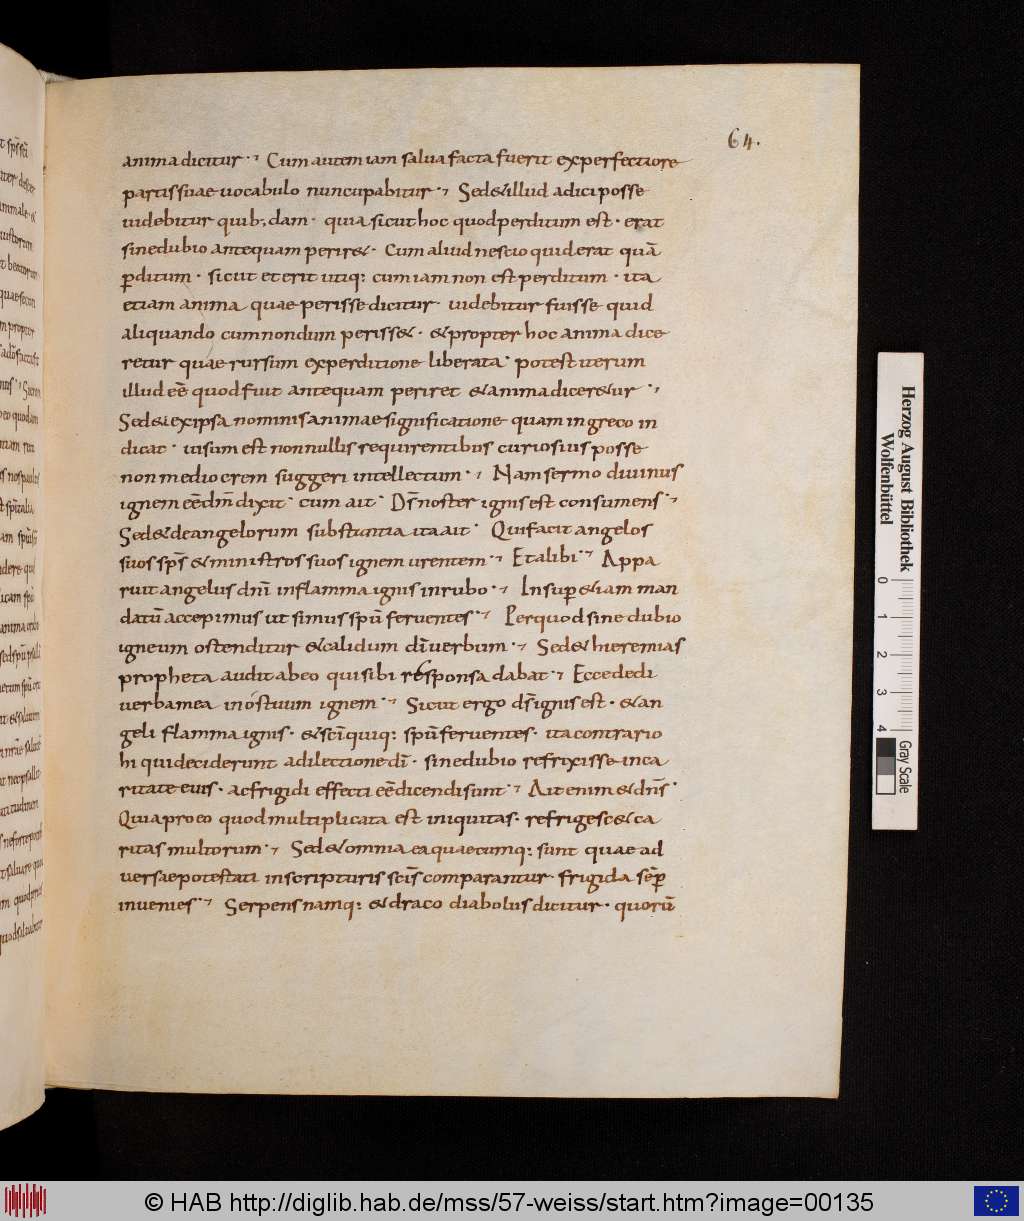 64.
anima dicitur·⁊ Cum autem iam salua facta fuerit experfectiore
partis suae uocabulo nuncupabitur·⁊ Sed&illud adici posse
uidebitur quib;dam· quia sicut hoc quod perditum est· erat
sine dubio antequam perir&· Cum aliud nescio quid erat quā
ꝑditum· sicut et erit utiq; cum iam non est perditum· ita
etiam anima quae perisse dicitur uidebitur fuisse quid
aliquando cum nondum periss&· &propter hoc anima dice
retur quae rursum experditione liberata· potest iterum
illud eē quod fuit antequam periret &anima dicer&ur·⁊
Sed&exipsa nominis animae significatione quam in greco in
dicat· uisum est nonnullis requirentibus curiosius posse
non mediocrem suggeri intellectum·⁊ Nam sermo diuinus
ignem eē dm̄ dixit· cum ait· Ds̄ noster ignis est consumens·⁊
Sed&de angelorum substantia ita ait· Qui facit angelos
suos sps̄ &ministros suos ignem urentem·⁊ Et alibi·⁊ Appa
ruit angelus dn̄i inflamma ignis in rubo·⁊ Insuꝑ&iam man
datū accepimus ut simus spū feruentes·⁊ Per quod sine dubio
igneum ostenditur &calidum dī uerbum·⁊ Sed&hieremias
propheta audit ab eo qui sibi responsa dabat·⁊ Ecce dedi
uerba mea in os tuum ignem·⁊ Sicut ergo ds̄ ignis est· &an
geli flamma ignis· &scī quiq; spū feruentes· ita contrario
hi qui deciderunt a dilectione dī· sine dubio refrixisse in ca
ritate eius· ac frigidi effecti eē dicendi sunt·⁊ Ait enim &dn̄s·
Quia pro eo quod multiplicata est iniquitas· refrigesc&ca
ritas multorum·⁊ Sed&omnia ea quaecumq; sunt quae ad
uersae potestati in scripturis scīs comparantur frigida sēꝑ
inuenies·⁊ Serpens namq; &draco diabolus dicitur· quorū
Herzog August Bibliothek
Wolfenbüttel
0 1 2 3 4
Gray Scale
© HAB http://diglib.hab.de/mss/57-weiss/start.htm?image=00135